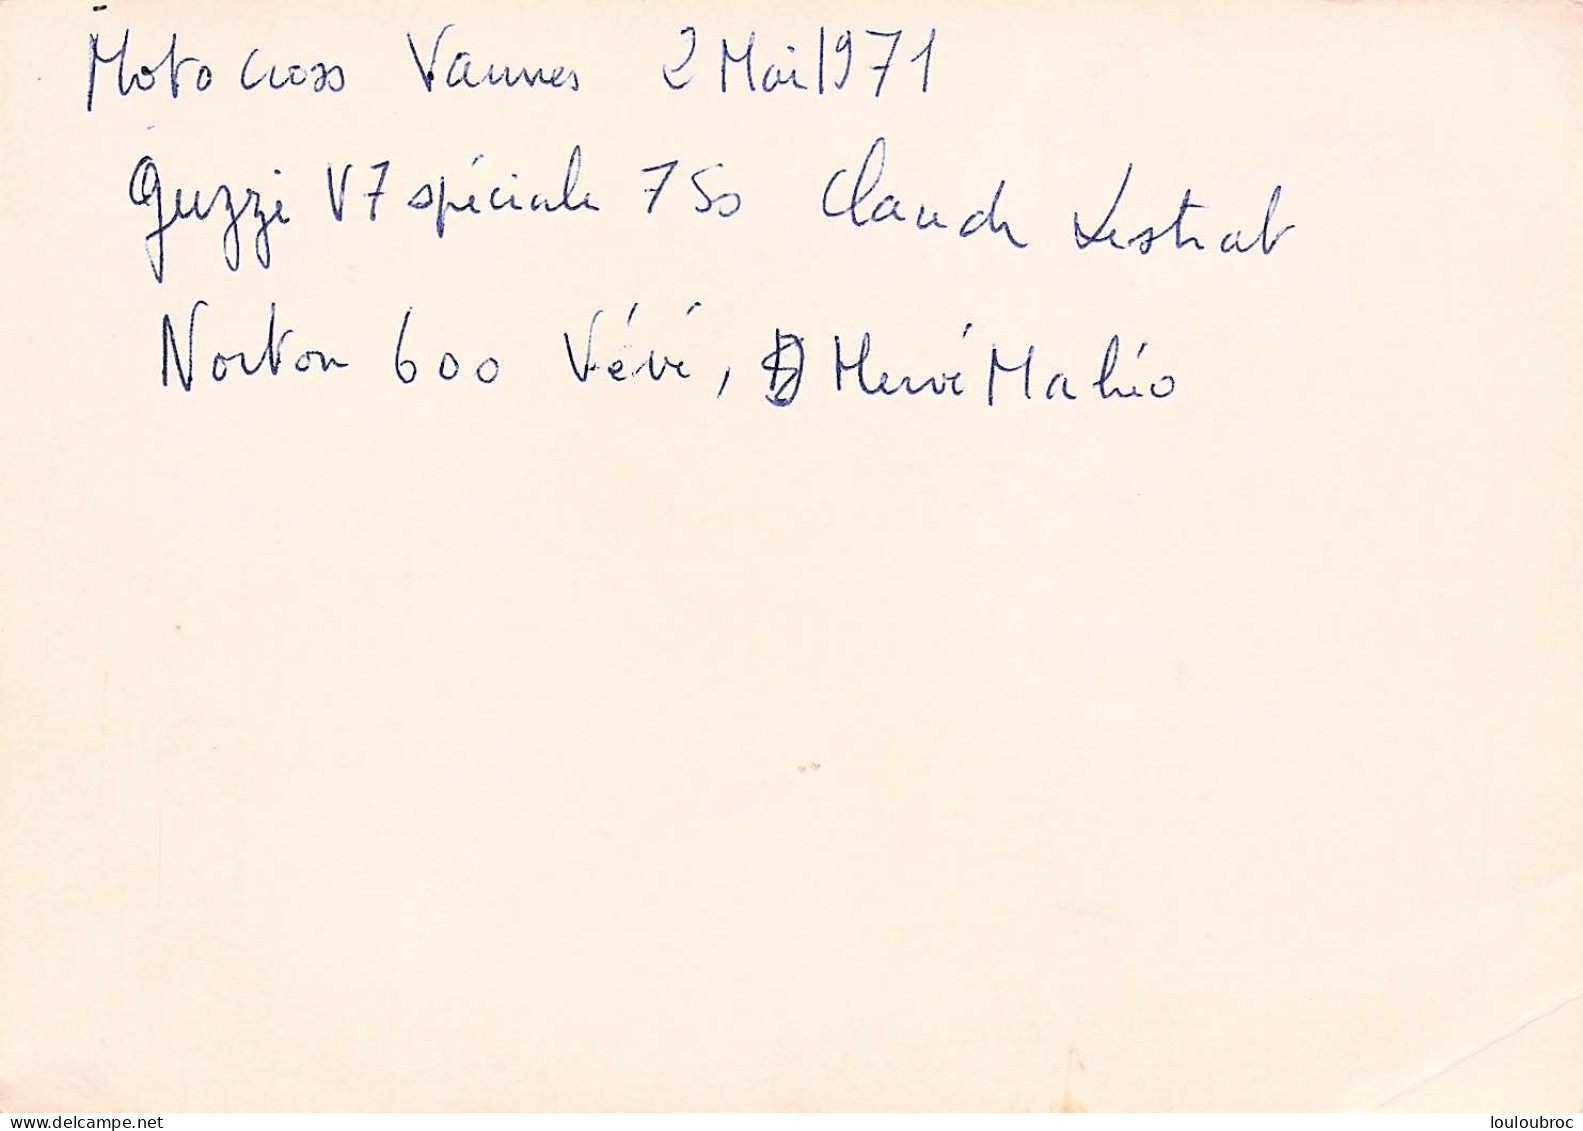 Moto cross Vannes 2 Mai 1971
Guzzi V7 spéciale 750 Claude Lestrat
Norton 600 Vévé, Hervé Mahéo
www.delcampe.net
louloubroc